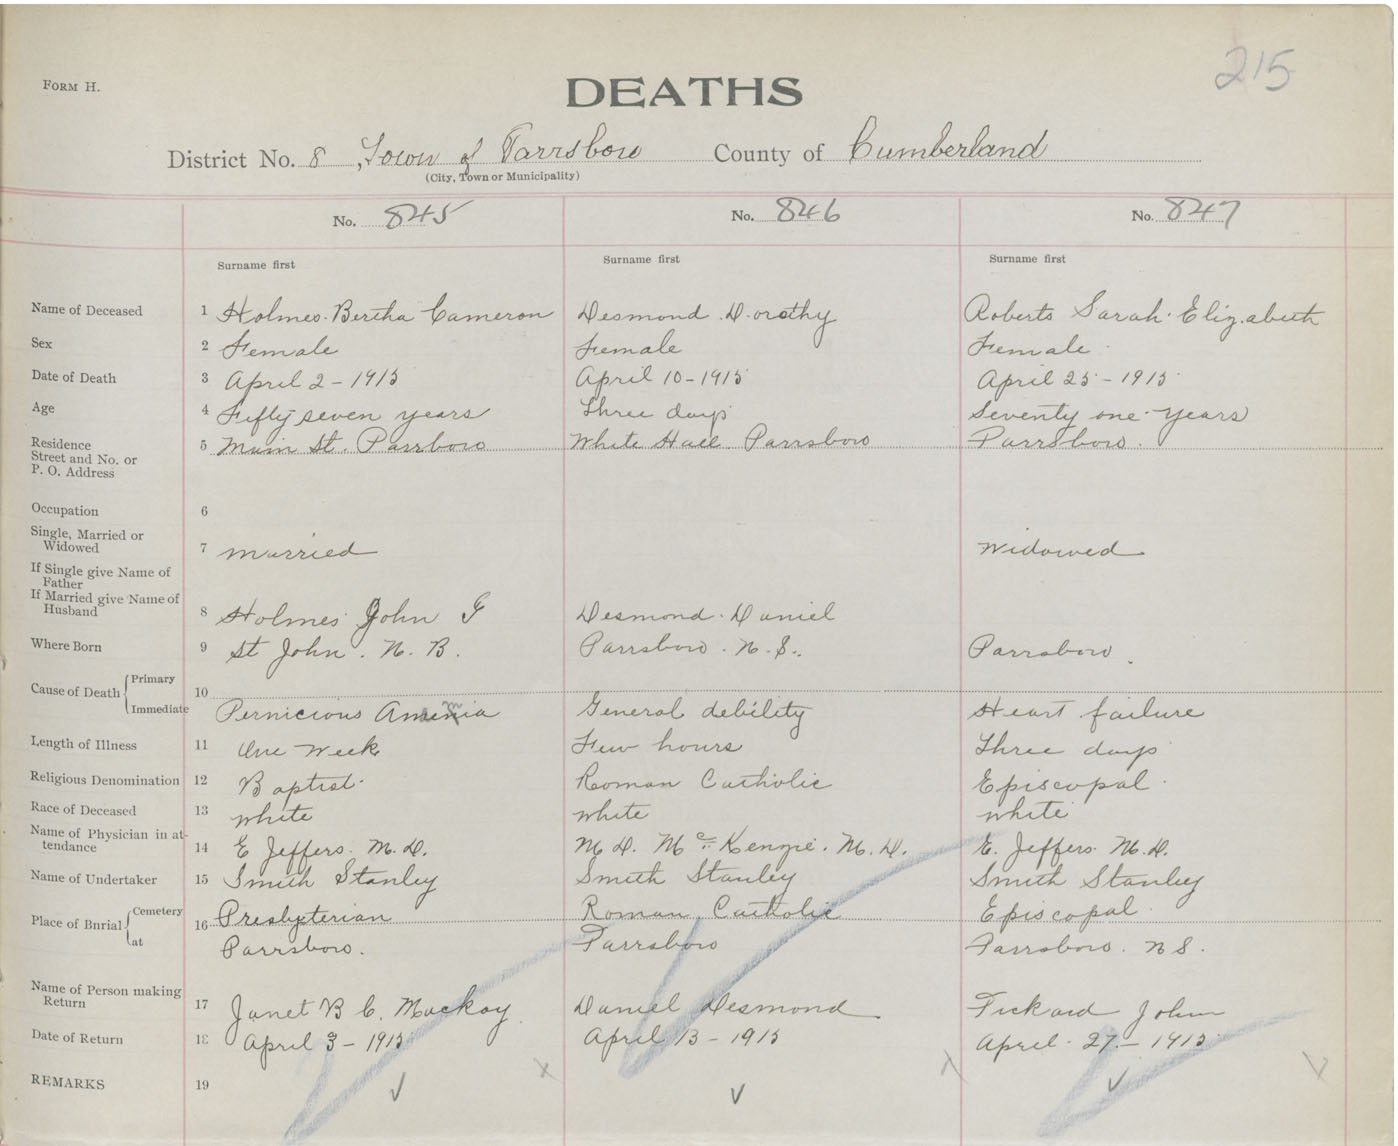 215
FORM H.
DEATHS
District No. 8, Town of Parrsboro County of Cumberland
(City, Town or Municipality)
No. 845 No. 846 No. 847
Surname first Surname first Surname first
Name of Deceased 1 Holmes Bertha Cameron Desmond Dorothy Roberts Sarah Elizabeth
Sex 2 Female Female Female
Date of Death 3 April 2 - 1915 April 10 - 1915 April 25 - 1915
Age 4 Fifty seven years Three days Seventy one years
Residence 5 Main St. Parrboro White Hall Parrsboro Parrsboro.
Street and No. or
P. O. Address
Occupation 6
Single, Married or
Widowed 7 married Widowed
If Single give Name of
Father
If Married give Name of
Husband 8 Holmes John G Desmond Daniel
Where Born 9 St John. N. B. Parrsboro. N. S. Parrsboro.
Cause of Death Primary 10
Immediate Pernicious Anemia General debility Heart failure
Length of Illness 11 One Week Few hours Three days
Religious Denomination 12 Baptist Roman Catholic Episcopal
Race of Deceased 13 white white white
Name of Physician in at-
tendance 14 E Jeffers. M. D. M D. Mc Kenzie. M. D. E. Jeffers M. D.
Name of Undertaker 15 Smith Stanley Smith Stanley Smith Stanley
Place of Burial Cemetery 16 Presbyterian Roman Catholic Episcopal
at Parrsboro. Parrsboro Parrsboro. N S.
Name of Person making
Return 17 Janet B C. Mackay Daniel Desmond Pickard John
Date of Return 18 April 3 - 1915 April 13 - 1915 April 27 - 1915
REMARKS 19